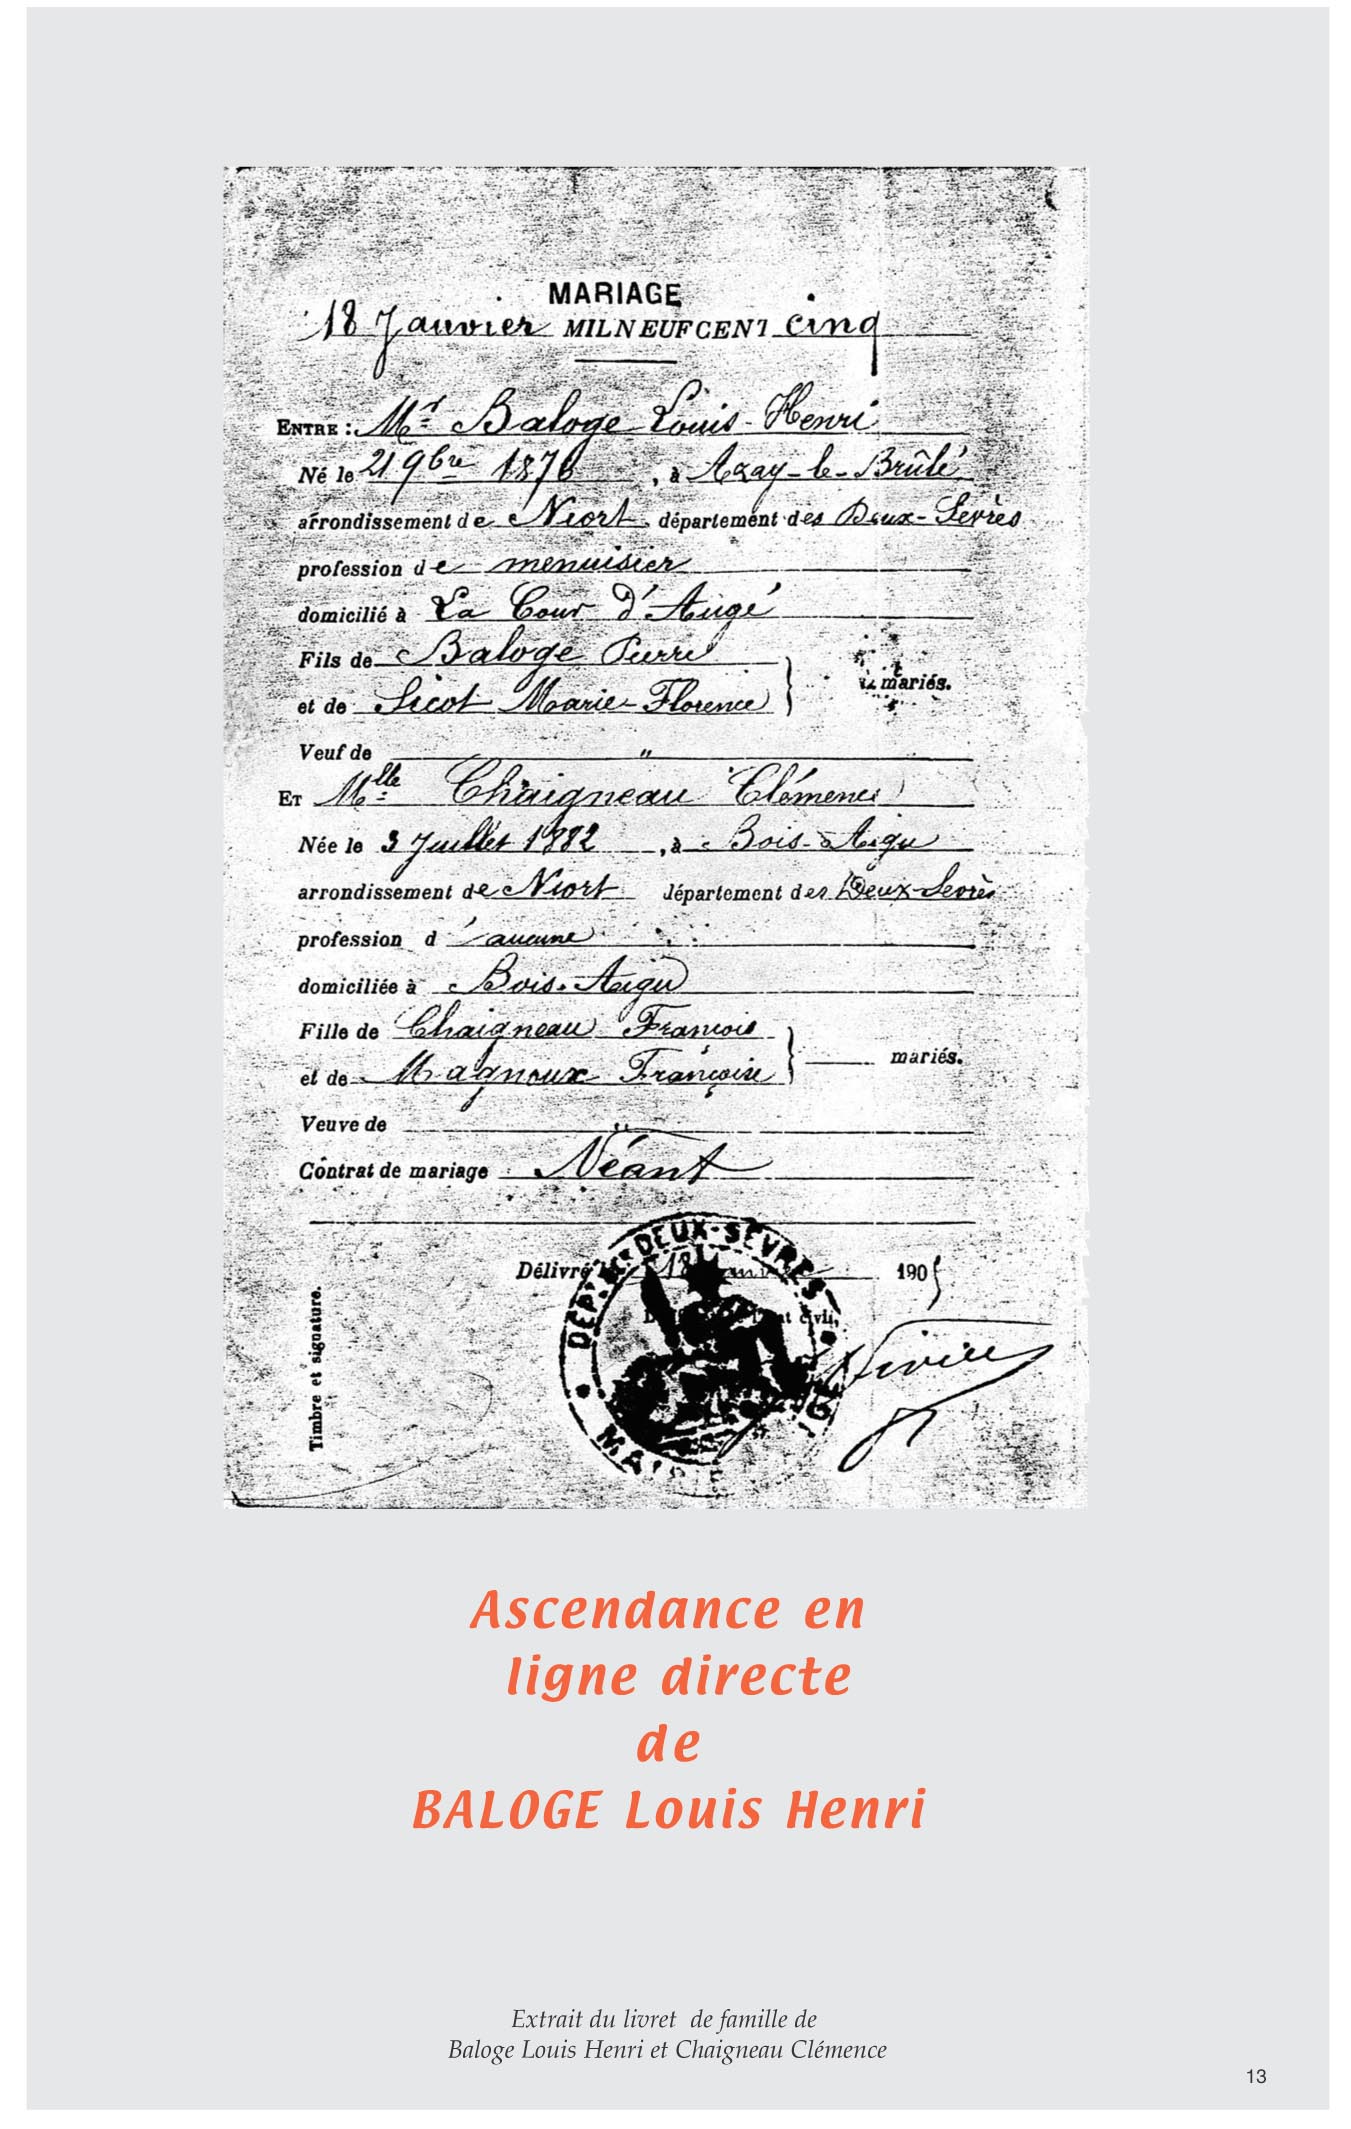 MARIAGE
18 Janvier MIL NEUF CENT cinq
ENTRE : Mr Baloge Louis-Henri
Né le 21 9bre 1876, à Azay-le-Brûlé
arrondissement de Niort département des Deux-Sèvres
profession de menuisier
domicilié à La Cour d'Augé
Fils de Baloge Pierre
et de Sicot Marie-Florence } mariés.
Veuf de "
ET Mlle Chaigneau Clémence
Née le 3 Juillet 1882, à Bois-Aigu
arrondissement de Niort département des Deux-Sèvres
profession d' aucune
domiciliée à Bois-Aigu
Fille de Chaigneau François
et de Magnoux Françoise } mariés.
Veuve de "
Contrat de mariage Néant
Délivré 18 1905
DEUX-SÈVRES
MAIRIE
Timbre et signature.
Ascendance en
ligne directe
de
BALOGE Louis Henri
Extrait du livret de famille de
Baloge Louis Henri et Chaigneau Clémence
13